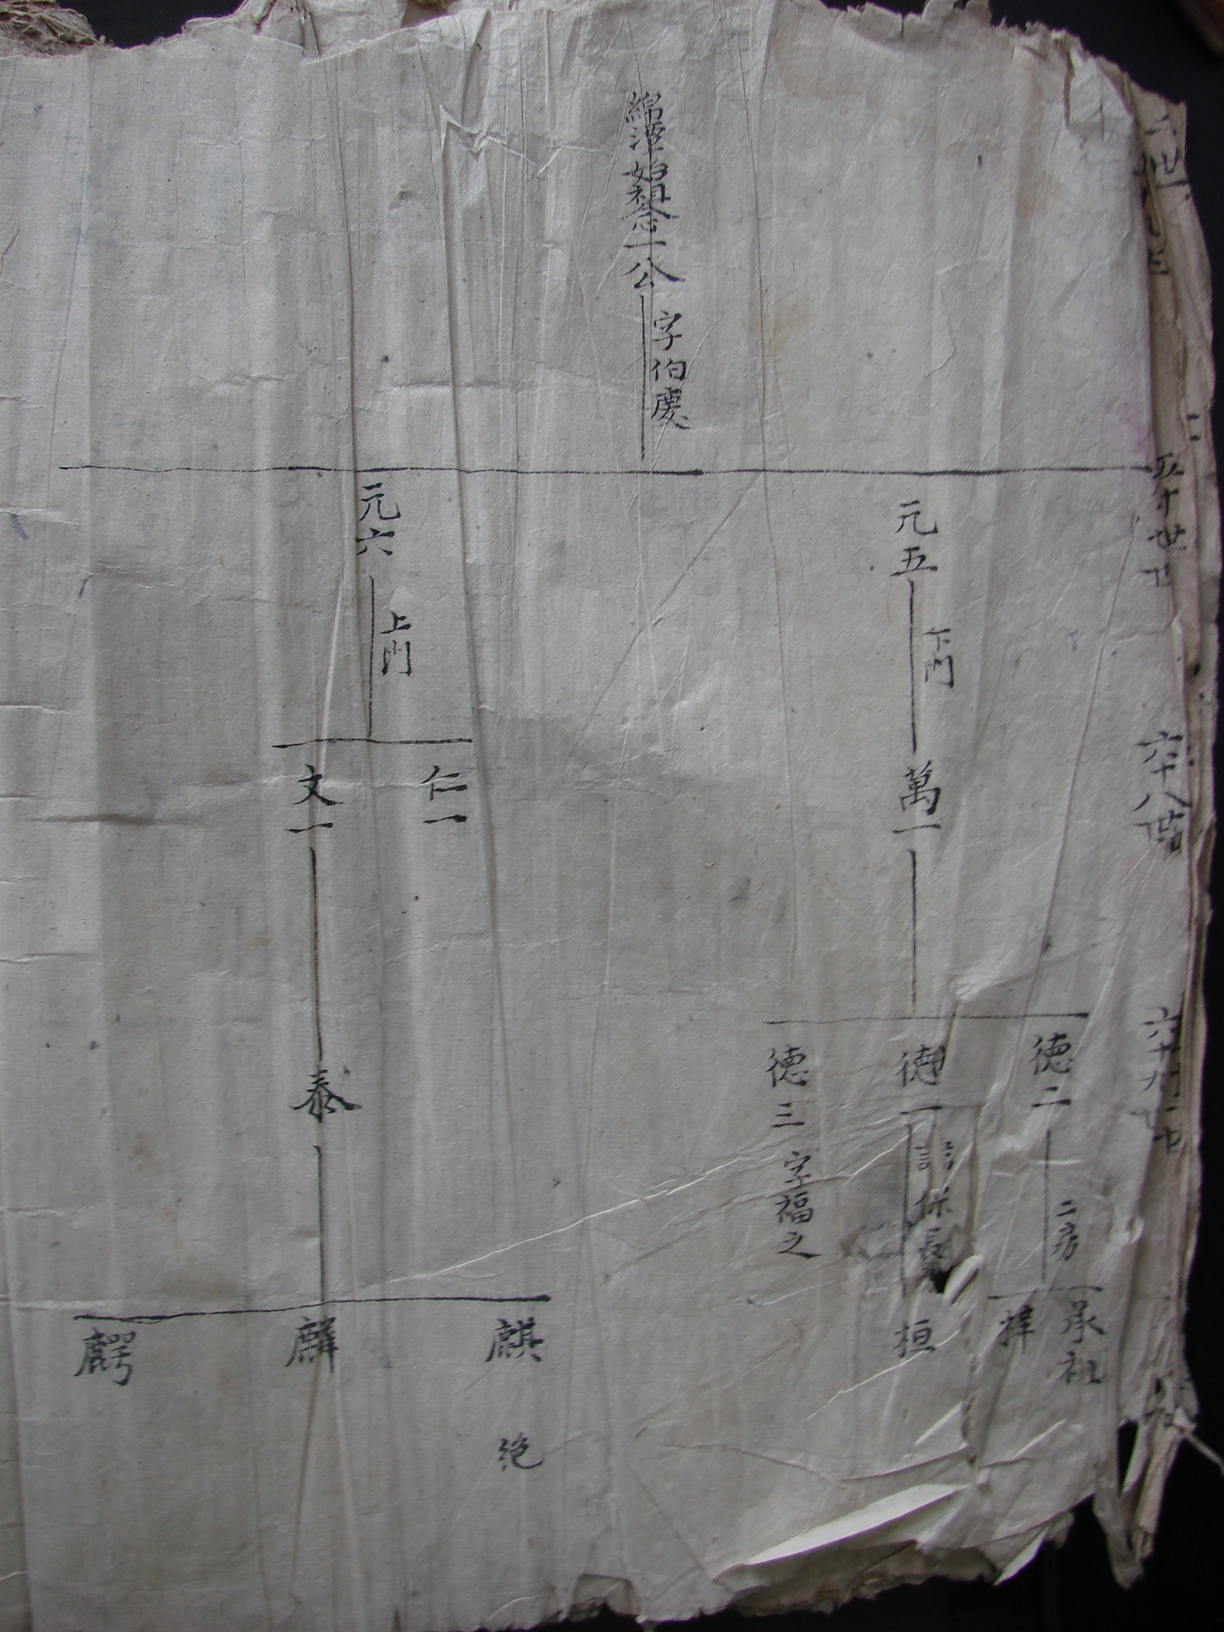 綿潭始祖念一公
字伯慶
元五
下門
萬一
德二
二房
承祖
德一
保長
桓
德三 字福之
元六
上門
仁一
文一
泰
麒 絶
麟
六十八世
六十九